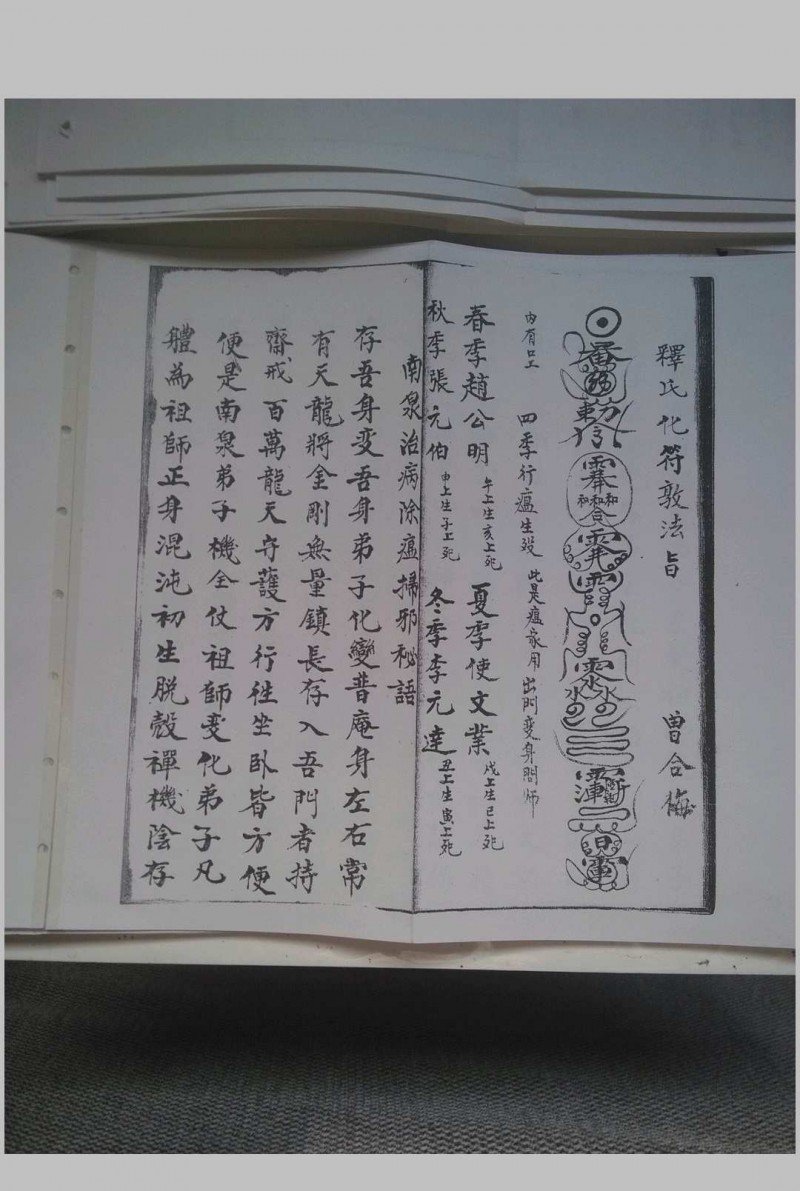 釋氏化符敦法旨 曾合梅
東方
和和和合
水水
內有口工 四季行瘟生殁 此是瘟家用 出門變身問師
春季趙公明 午上生亥上死 夏季使文業 戌上生巳上死
秋季張元伯 申上生子上死 冬季李元達 丑上生寅上死
南泉治病除瘟掃邪秘語
存吾身变吾身弟子化變昔庵身左右常
有天龍將金剛無量鎮長存入吾門者持
齋戒百萬龍天守護方行徃坐卧皆方便
便是南泉弟子機全仗祖師变化弟子凡
體為祖師正身混沌初生脱殼禪機陰存